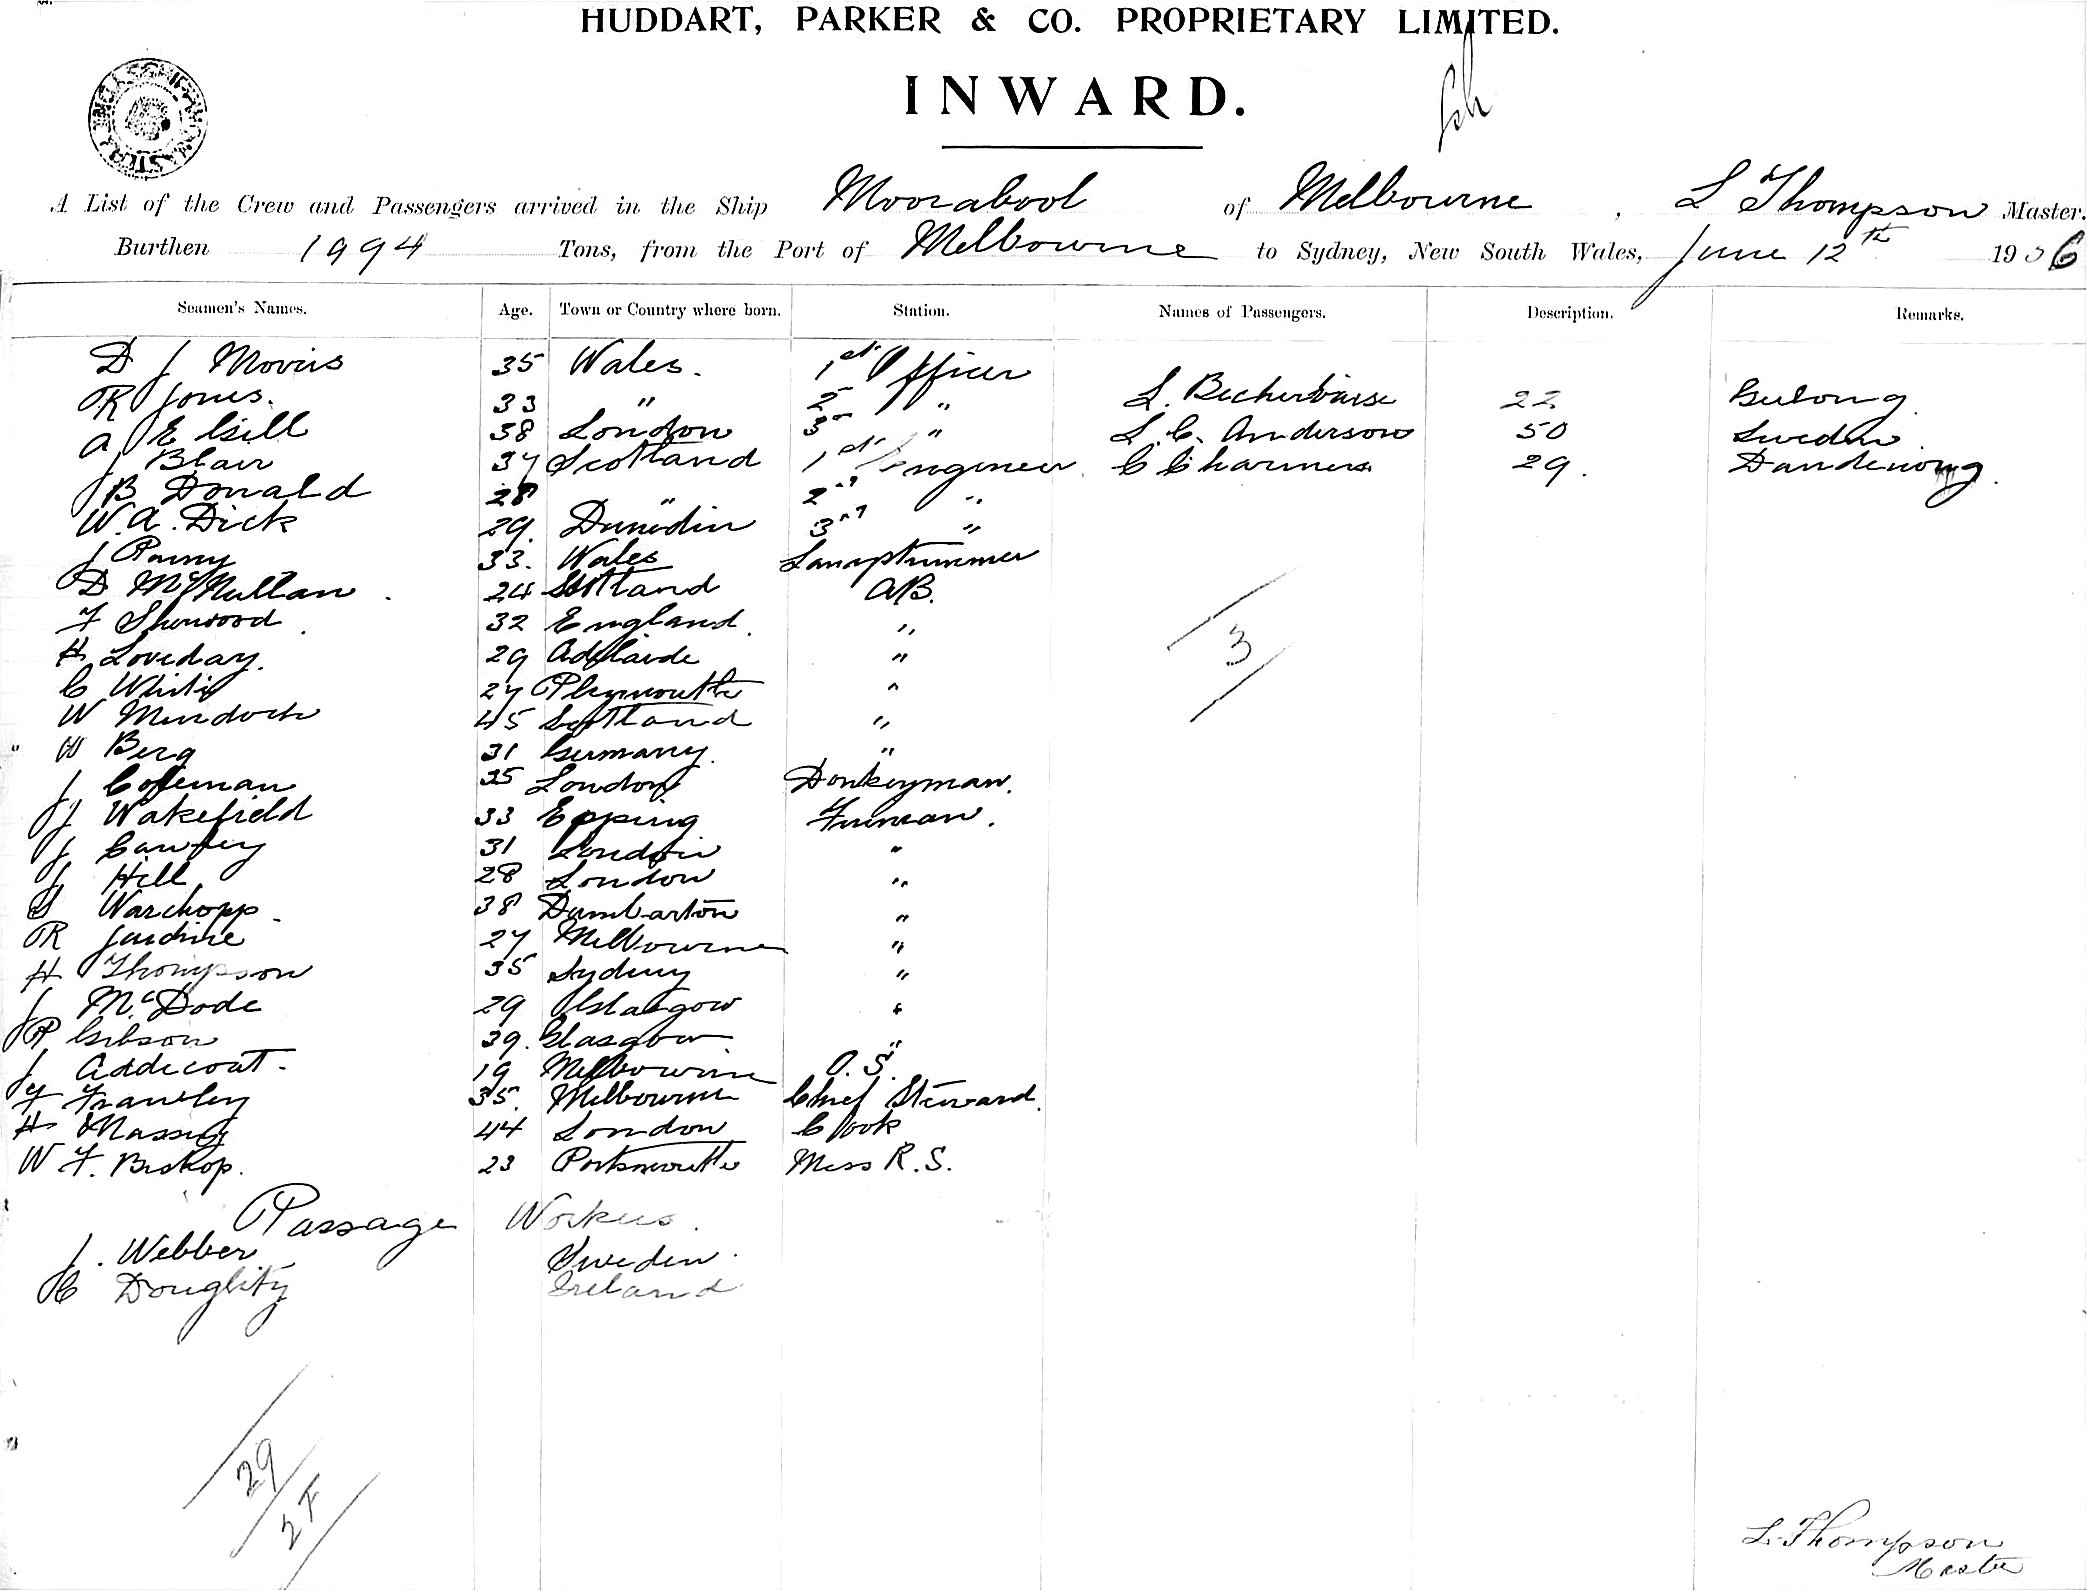 HUDDART, PARKER & CO. PROPRIETARY LIMITED.
INWARD.
A List of the Crew and Passengers arrived in the Ship Moorabool of Melbourne, L Thompson Master.
Burthen 1994 Tons, from the Port of Melbourne to Sydney, New South Wales, June 12th 1906
Seamen's Names. Age. Town or Country where born. Station. Names of Passengers. Description. Remarks.
D J Morris 35 Wales. 1st Officer
R Jones. 33 " 2nd " L. 22 Geelong
A E Gill 38 London 3rd " L. C. Anderson 50 Sweden.
J Blair 37 Scotland 1st Engineer. C Charmers 29. Dandenong.
J B Donald 28 " 2nd "
W. A. Dick 29. Dunedin 3rd "
J 33. Wales Lamptrimmer
D McMullan. 24 Scotland AB.
F Sherwood. 32 England. "
H Loveday. 29 Adelaide "
C White 27 Plymouth "
W Murdoch 45 Scotland "
W Berg 31 Germany. "
J Coleman 35 London Donkeyman.
J J Wakefield 33 Epping Fireman.
J Cawley 31 London "
J Hill 28 London "
Warchopp. 38 Dumbarton "
R Jardine 27 Melbourne "
H Thompson 35 Sydney "
J McDade 29 Glasgow "
R Gibson 39. Glasgow "
J Addicoat. 19 Melbourne O. S.
F Frawley 35. Melbourne Chief Steward.
H Massey 44 London Cook
W F. Bishop. 23 Portsmouth Mess R. S.
3
Passage Workers.
J. Webber Sweden.
C Doughty Ireland
29
2F
L. Thompson
Master